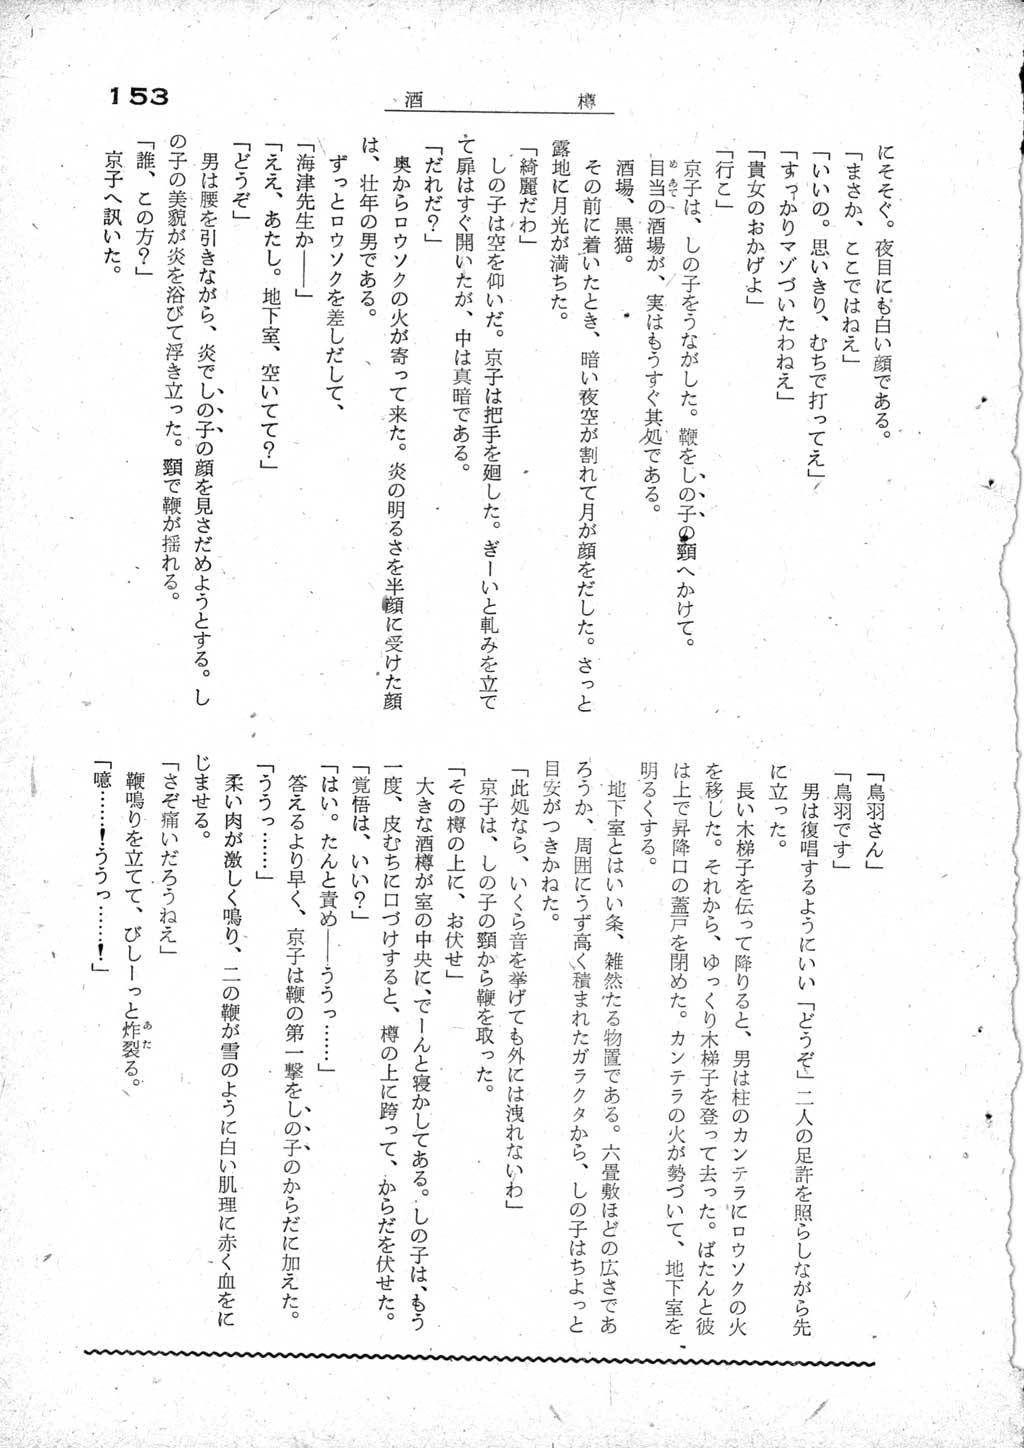 153
酒樽
にそそぐ。夜目にも白い顔である。
「まさか、ここではねえ」
「いいの。思いきり、むちで打ってえ」
「すっかりマゾづいたわねえ」
「貴女のおかげよ」
「行こ」
京子は、しの子をうながした。鞭をしの子の頸へかけて。
目当の酒場が、実はもうすぐ其処である。
めあて
酒場、黒猫。
その前に着いたとき、暗い夜空が割れて月が顔をだした。さっと
露地に月光が満ちた。
「綺麗だわ」
しの子は空を仰いだ。京子は把手を廻した。ぎーいと軋みを立て
て扉はすぐ開いたが、中は真暗である。
「だれだ？」
奥からロウソクの火が寄って来た。炎の明るさを半顔に受けた顔
は、壮年の男である。
ずっとロウソクを差しだして、
「海津先生か――」
「ええ、あたし。地下室、空いてて？」
「どうぞ」
男は腰を引きながら、炎でしの子の顔を見さだめようとする。し
の子の美貌が炎を浴びて浮き立った。頸で鞭が揺れる。
「誰、この方？」
京子へ訊いた。
「鳥羽さん」
「鳥羽です」
男は復唱するようにいい「どうぞ」二人の足許を照らしながら先
に立った。
長い木梯子を伝って降りると、男は柱のカンテラにロウソクの火
を移した。それから、ゆっくり木梯子を登って去った。ばたんと彼
は上で昇降口の蓋戸を閉めた。カンテラの火が勢づいて、地下室を
明るくする。
地下室とはいい条、雑然たる物置である。六畳敷ほどの広さであ
ろうか、周囲にうず高く積まれたガラクタから、しの子はちょっと
目安がつきかねた。
「此処なら、いくら音を挙げても外には洩れないわ」
京子は、しの子の頸から鞭を取った。
「その樽の上に、お伏せ」
大きな酒樽が室の中央に、でーんと寝かしてある。しの子は、もう
一度、皮むちに口づけすると、樽の上に跨って、からだを伏せた。
「覚悟は、いい？」
「はい。たんと責め――ううっ……」
答えるより早く、京子は鞭の第一撃をしの子のからだに加えた。
「ううっ……」
柔い肉が激しく鳴り、二の鞭が雪のように白い肌理に赤く血をに
じませる。
「さぞ痛いだろうねえ」
鞭鳴りを立てて、びしーっと炸裂る。
あた
「噫……！ううっ……！」